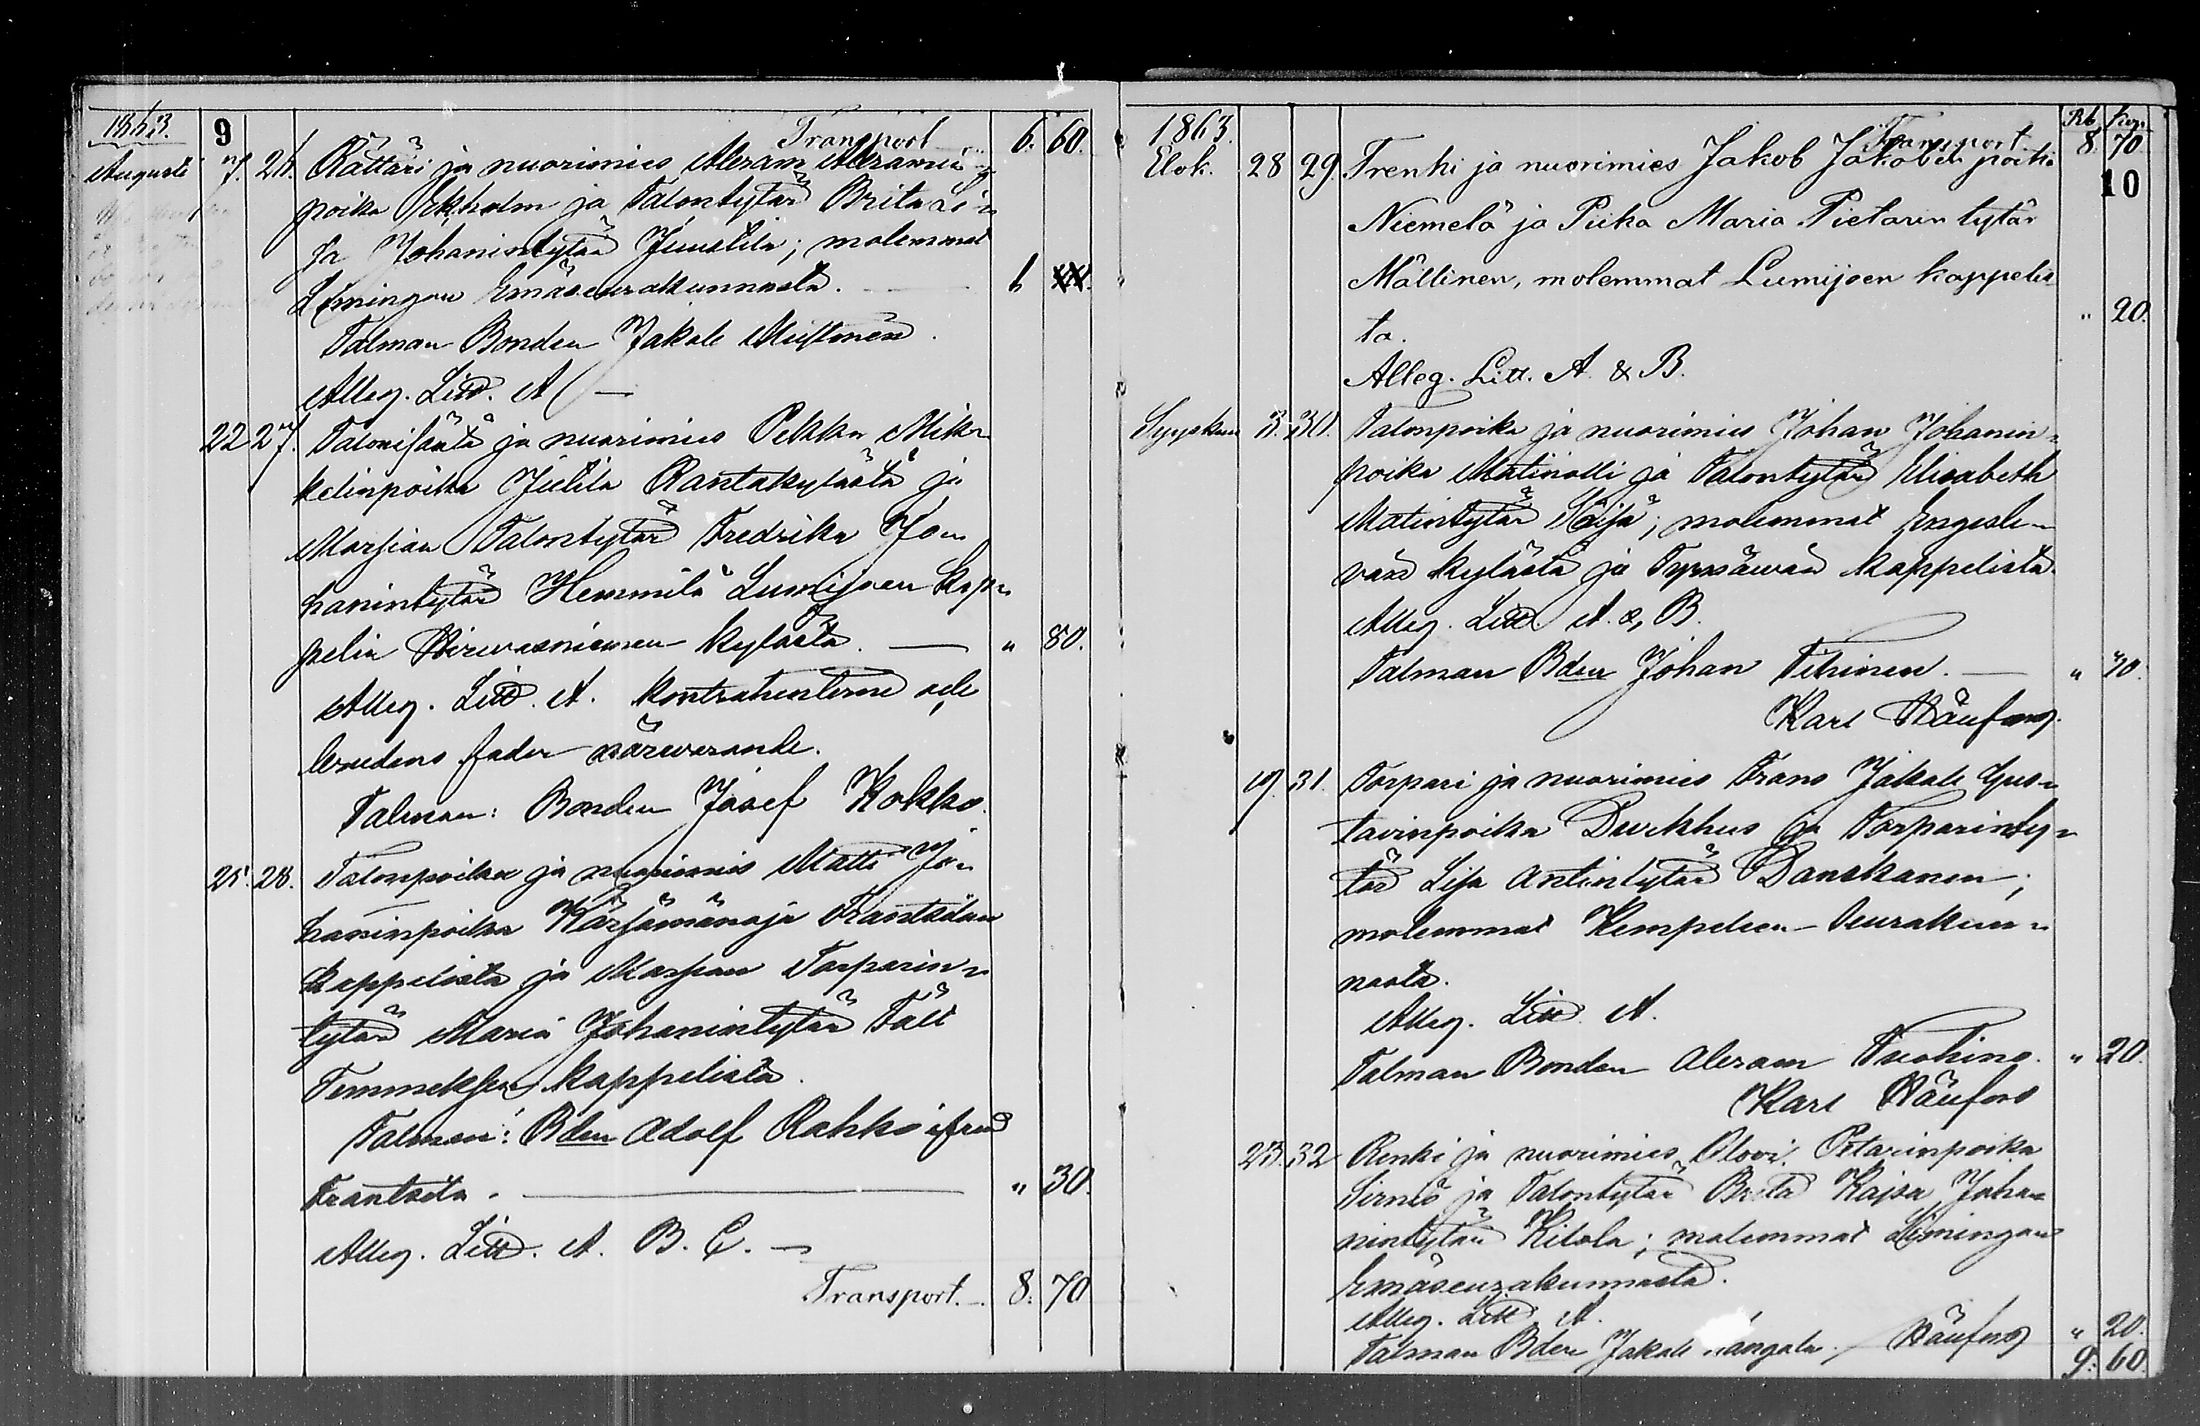 1863. 9 Transport 6. 60.
Augusti 7. 26. Rättäri ja nuorimies Abram Abramin
poika Ekholm ja Talontytär Brita Li-
sa Johanintytär Juustila; molemmat
Limingan Emäseurakunnasta.
Talman Bonden Jakob Miettunen.
Alleg. Litt. A
22 27. Talonisäntä ja nuorimies Pekka Mik-
kelinpoika Juttila Rantakylästä ja
Morsian Talontytär Fredrika Jo-
hanintytär Hemmilä Lumijoen kap-
pelin Hirvasniemen kylästä. " 80.
Alleg. Litt. A. Kontrahenterne och
brudens fader närvarande.
Talman: Bonden Josef Kokko.
25. 28. Talonpoika ja nuorimies Matti Jo-
haninpoika Kärsämänoja Frantsilan
kappelista ja Morsian Torparin-
tytär Maria Johanintytär Fält
Temmeksen kappelista.
Talman: Bden Adolf Rahko ifrån
Frantsila. " 30.
Alleg. Litt. A. B. C.
Transport. 8. 70
1863. Transport Rb. 8. Kop. 70
10
Elok. 28 29. Trenki ja nuorimies Jakob Jakobin poika
Niemelä ja Piika Maria Pietarin tytär
Mällinen, molemmat Lumijoen kappelis
ta. " 20.
Alleg. Litt. A. & B.
Syyskuu 3. 30. Talonpoika ja nuorimies Johan Johanin-
poika Matinolli ja Talontytär Elisabeth
Matintytär Keijä; molemmat Ängesle-
vän kylästä ja Tyrnäwän kappelista.
Alleg. Litt A. & B.
Talman Bden Johan Tihinen. "
Karl Näufors.
19. 31. Torpari ja nuorimies Frans Jakob Gus-
tavinpoika Durkhus ja Torparinty-
tär Lisa Antintytär Danskanen;
molemmat Kempeleen Seurakun-
nasta.
Alleg. Litt. A.
Talman Bonden Abram Tuohino. " 20.
Karl Näufors
23. 32 Renki ja nuorimies Olovi Petarinpoika
Sirniö ja Talontytär Brita Kajsa Joha-
nintytär Kitola; molemmat Limingan
Emäseurakunnasta.
Alleg. Litt. A.
Talman Bden Jakob Näufors " 20.
9. 60.